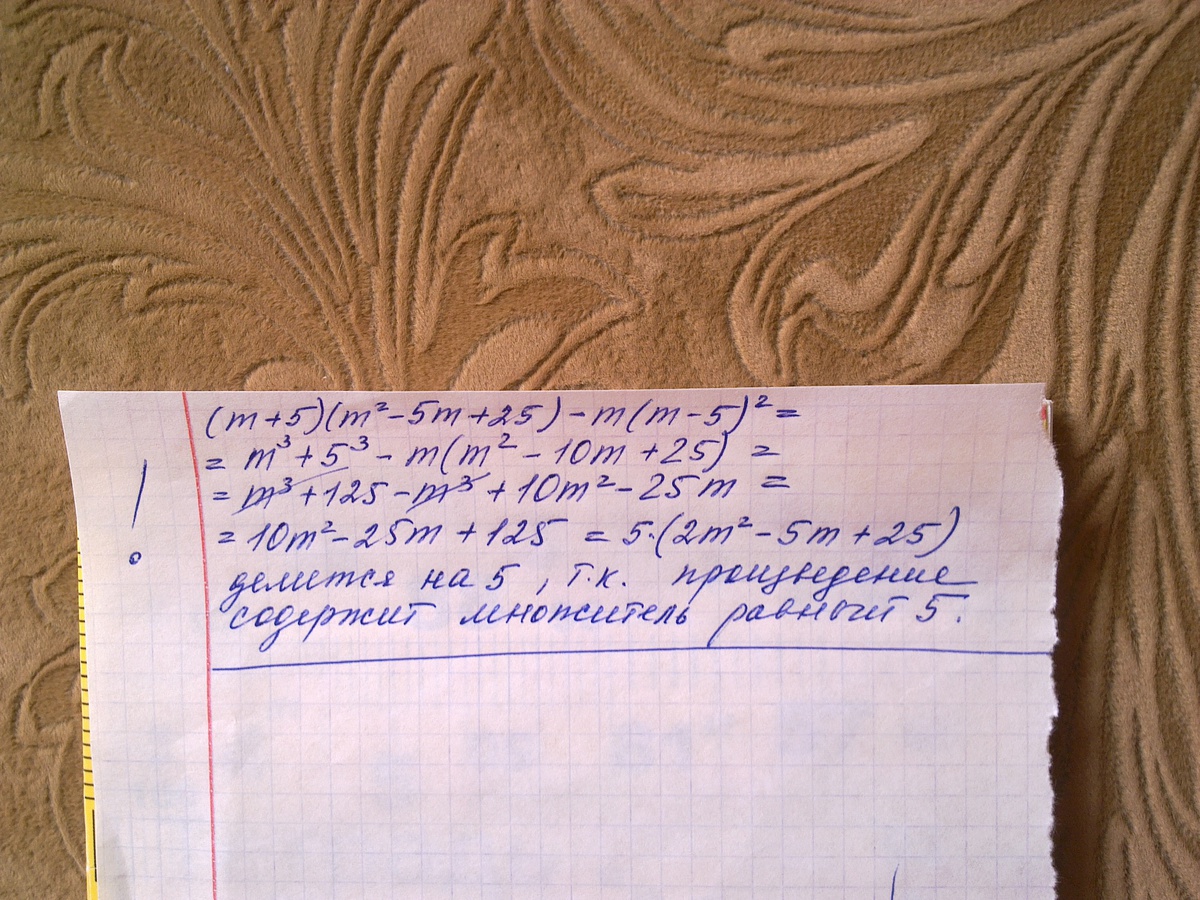 (m+5)(m²-5m+25)-m(m-5)²=
= m³+5³-m(m²-10m+25) =
= m³+125-m³+10m²-25m =
= 10m²-25m+125 = 5·(2m²-5m+25)
делится на 5, т.к. произведение
содержит множитель равный 5.
!